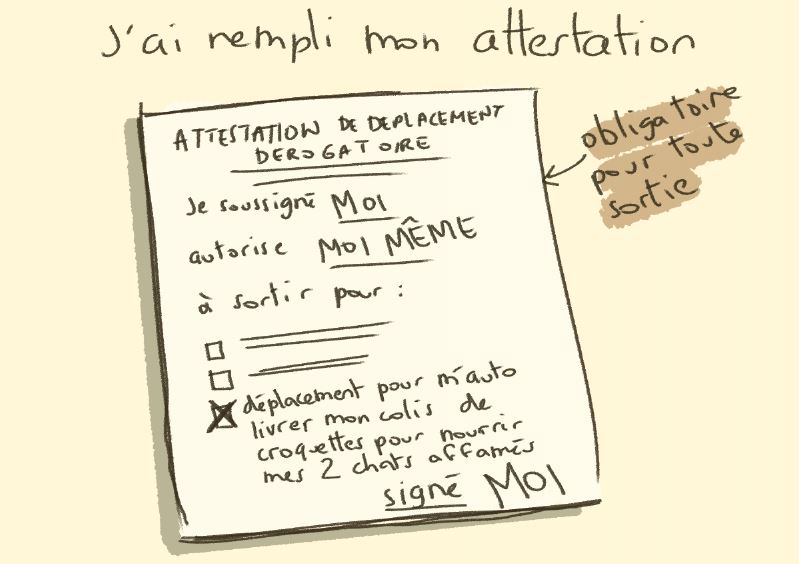 J'ai rempli mon attestation
ATTESTATION DE DEPLACEMENT
DEROGATOIRE
obligatoire
pour toute
sortie
Je soussigné MOI
autorise MOI MÊME
à sortir pour :
déplacement pour m'auto
livrer mon colis de
croquettes pour nourrir
mes 2 chats affamés
signé MOI